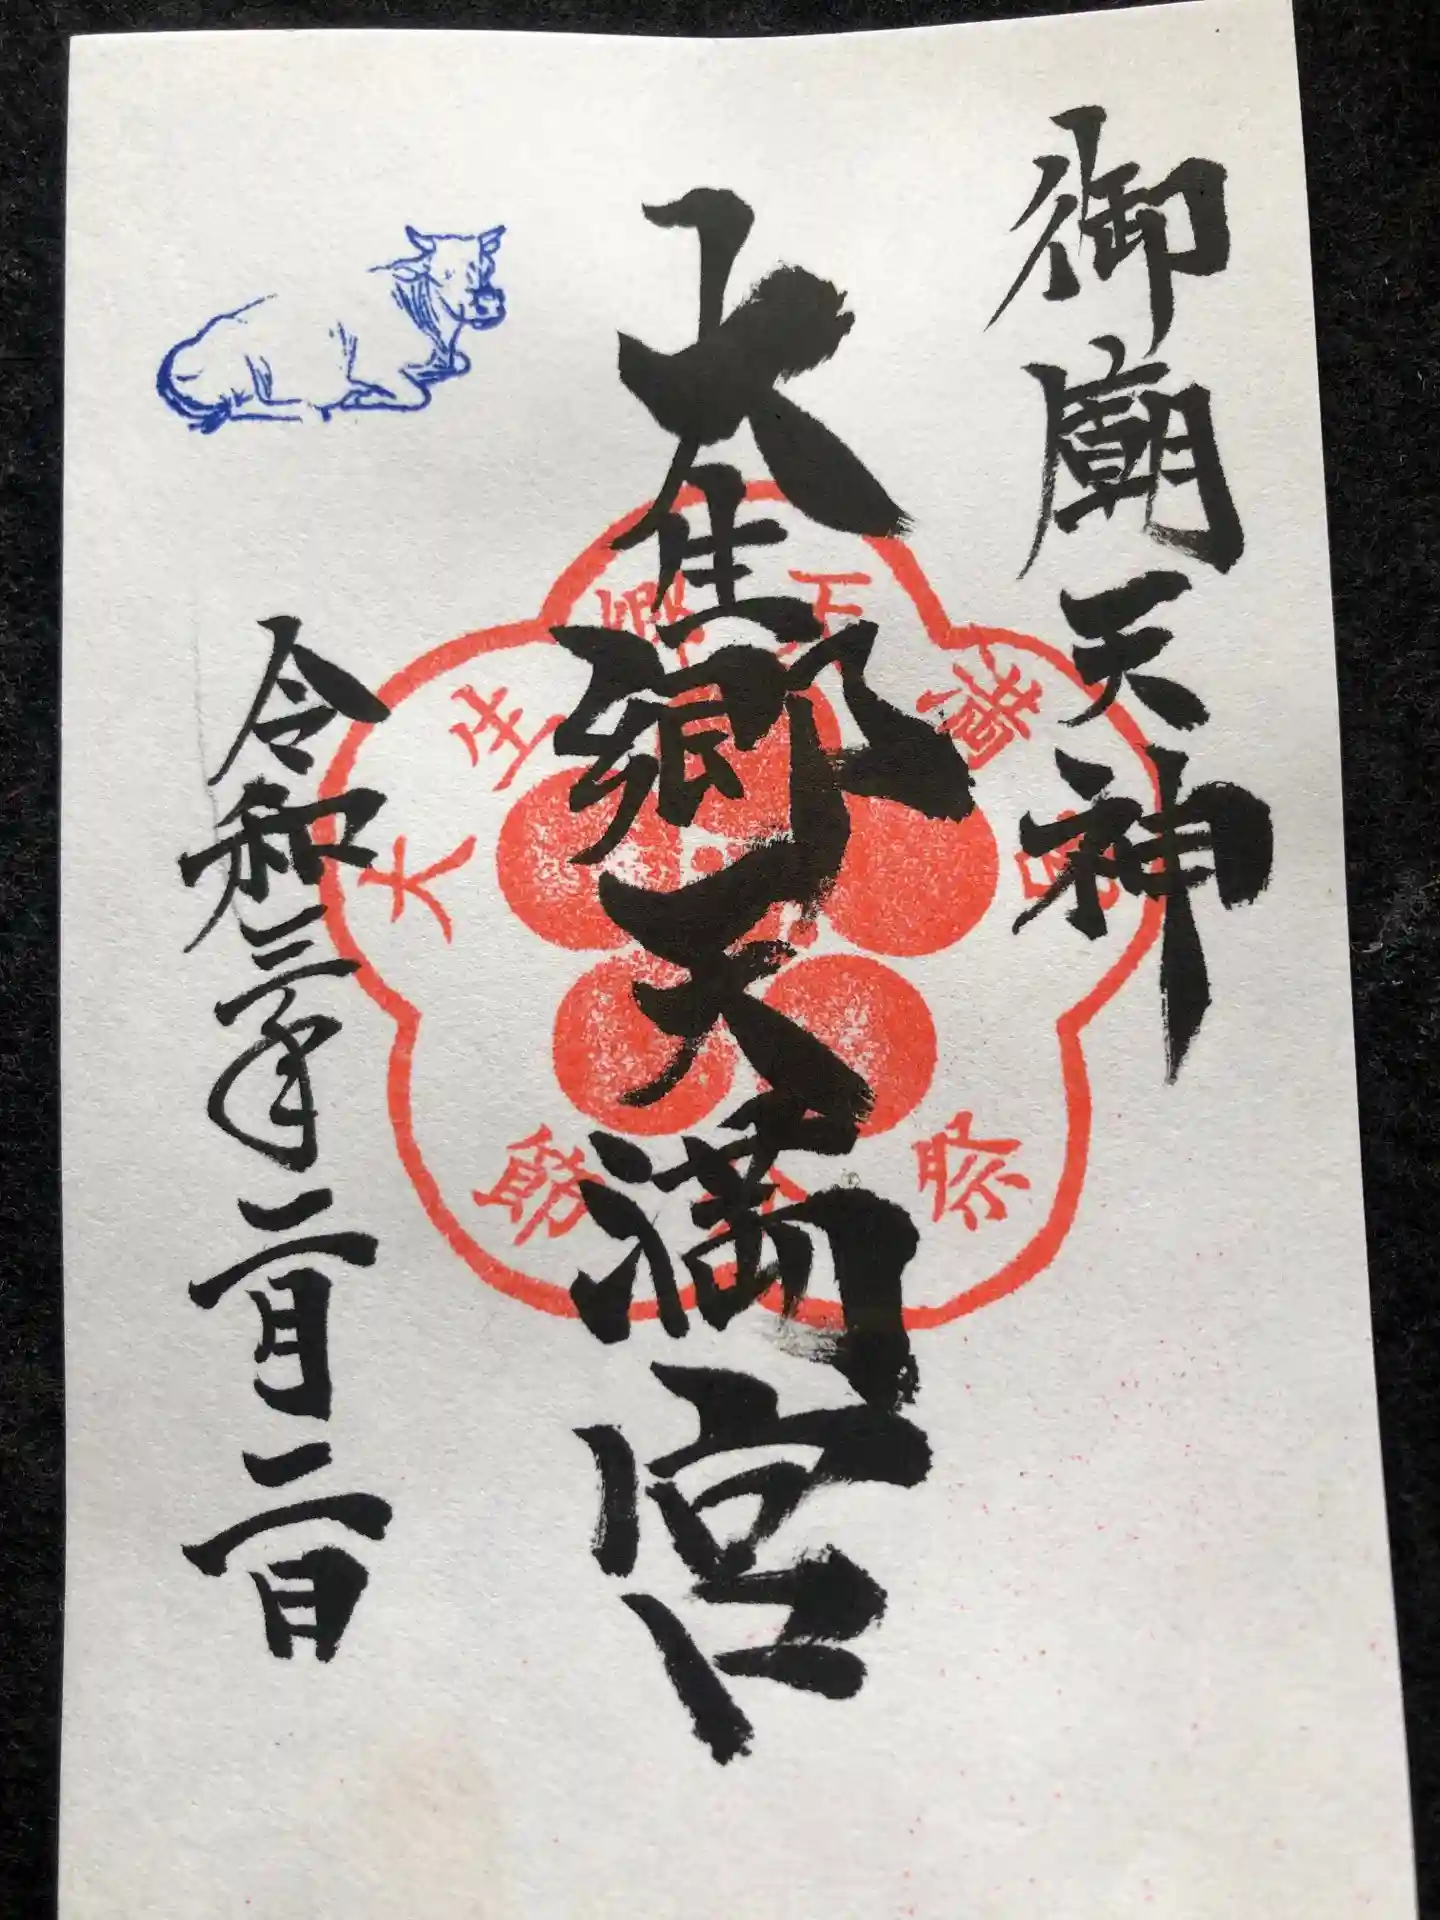 御廟天神
大生郷天満宮
令和三年二月二日
大生郷天満宮
節分祭